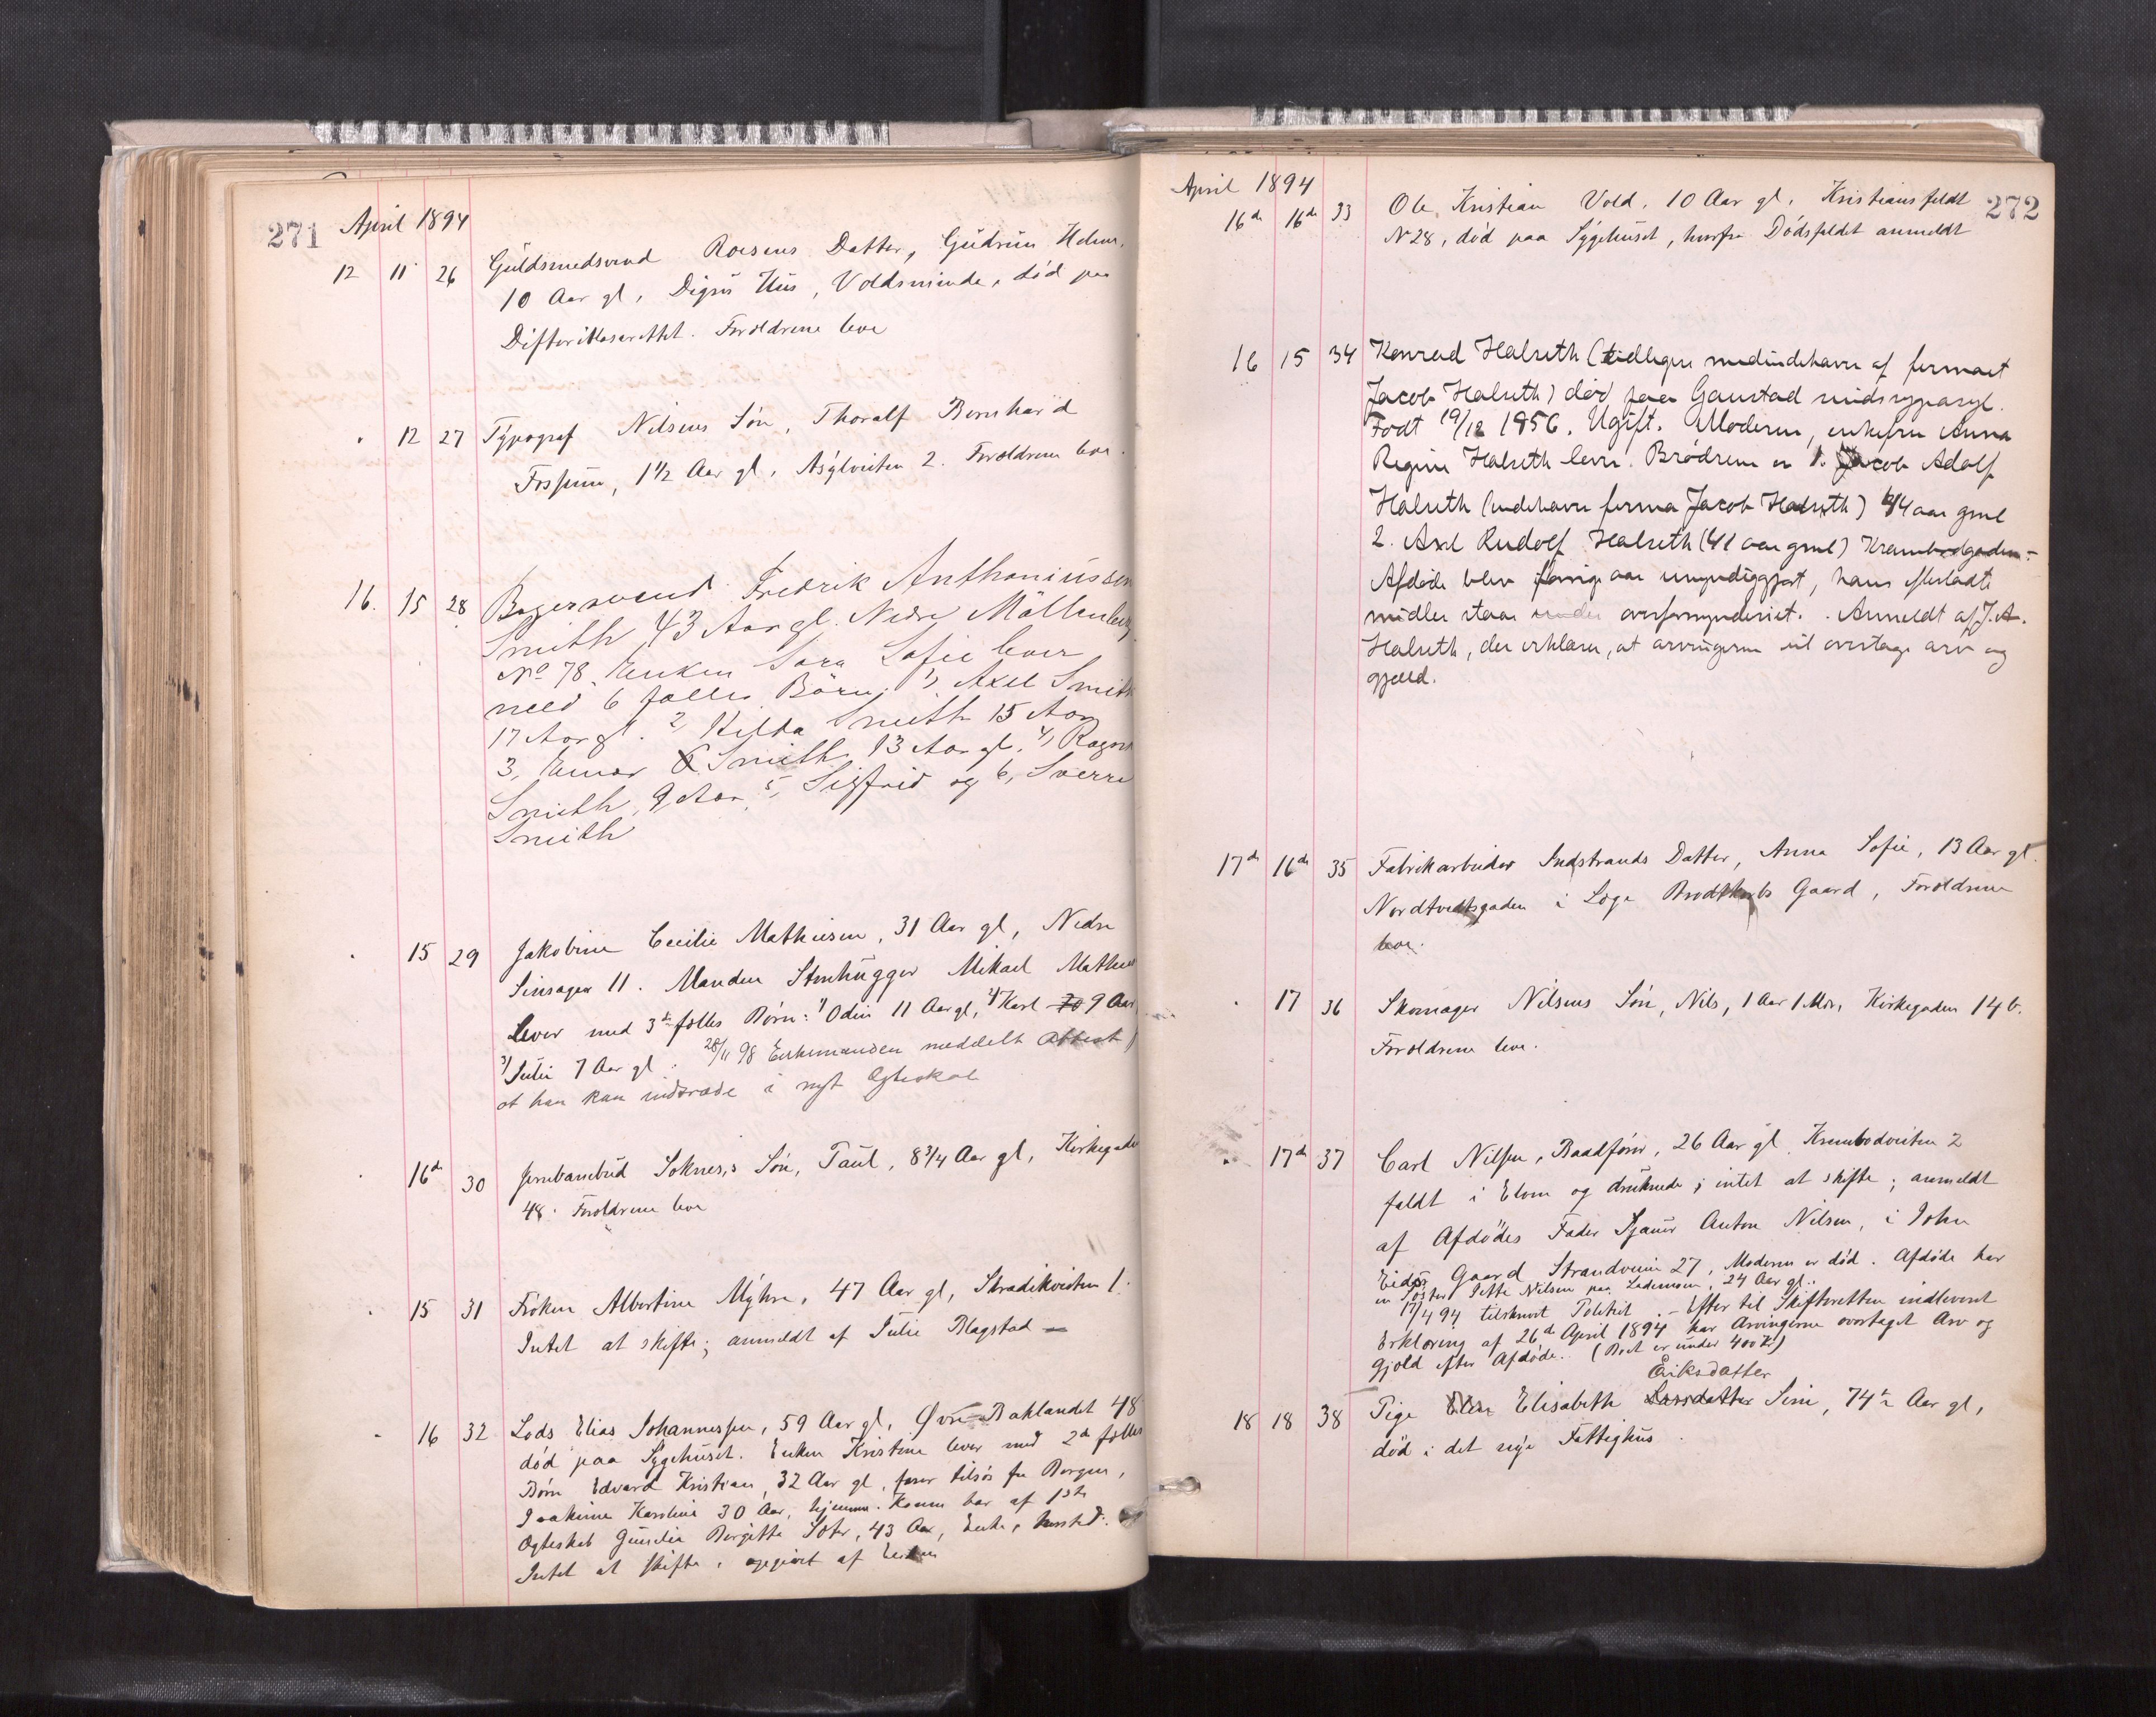 271 April 1894
12 11 26 Guldsmedsvend Roesens Datter, Gudrun Helene,
10 Aar gl, Digres Hus, Voldsminde, død paa
Difteritlasarettet. Forældrene leve
" 12 27 Typograf Nilsens Søn, Thoralf Bernhard
Fossum, 1 1/2 Aar gl, Asylveiten 2. Forældrene leve.
16. 15 28 Bagersvend Fredrik Anthoniussen
Smith, 43 Aar gl. Nedre Möllenberg
No 78. Enken Sara Sofie lever
med 6 fælles Börn: 1, Axel Smith
17 Aar gl. 2, Hilda Smith 15 Aar
3, Einar Smith, 13 Aar gl. 4, Ragna
Smith, 9 Aar, 5, Sigfrid og 6, Sverre
Smith
" 15 29 Jakobine Cecilie Mathiesen, 31 Aar gl, Nedre
Singsager 11. Manden Stenhugger Mikael Mathies
lever med 3de fælles Børn: 1/ Odin 11 Aar gl, 2/ Karl 9 Aar
3/ Julie 7 Aar gl. 28/11 98 Enkemanden meddelt Attest
at han kan indtræde i nyt Ægteskab
" 16de 30 Jernbanebud Soknes's Søn, Paul, 8 3/4 Aar gl, Kirkegaden
48. Forældrene leve
" 15 31 Frøken Albertine Myhre, 47 Aar gl, Skradikveiten 1.
Intet at skifte; anmeldt af Julie Blagstad
" 16 32 Lods Elias Johannessen, 59 Aar gl, Øvre Baklandet 48
død paa Sygehuset. Enken Kristine lever med 2de fælles
Børn Edvard Kristian, 32 Aar gl, farer tilsøs fra Bergen,
Joakime Karoline 30 Aar, hjemme. Konen har af 1ste
Ægteskab Gunelie Bergitte 43 Aar, Enke,
Intet at skifte, opgivet af Enken
April 1894 272
16de 16de 33 Ole Kristian Vold, 10 Aar gl, Kristiansfeldt
N 28, død paa Sygehuset, hvorfra Dødsfaldet anmeldt
16 15 34 Konrad Halseth (tidligere medindehaver af firmaet
Jacob Halseth) död paa Gaustad sindssygeasyl.
Födt 19/12 1856. Ugift. Moderen, enkefru Anna
Regine Halseth lever. Brödrene er 1. Jacob Adolf
Halseth (indehaver firma Jacob Halseth) 44 aar gml
2. Axel Rudolf Halseth (41 aar gml) Krambodgaden.
Afdöde blev ifjor umyndiggjort, hans efterladte
midler staar under overformynderiet. Anmeldt af J. A.
Halseth, der erklærer, at arvingerne vil overtage arv og
gjæld.
17de 16de 35 Fabrikarbeider Indstrands Datter, Anna Sofie, 13 Aar gl.
Nordtvedtsgaden i Loge Brodtkorbs Gaard, Forældrene
leve.
" 17 36 Skomager Nilsens Søn, Nils, 1 Aar 1 Mdr, Kirkegaden 14 b.
Forældrene leve.
" 17de 37 Carl Nilssen, Baadfører, 26 Aar gl, Krambodveiten 2
faldt i Elven og druknede; intet at skifte; anmeldt
af Afdødes Fader Sjauer Anton Nilsen, i John
Eides Gaard Strandveien 27, Moderen er død. Afdøde har
en Søster Jette Nilsen paa Lademoen, 24 Aar gl.
17/4 94 tilskrevet Politiet. - Efter til Skifteretten indleveret
Erklæring af 26de April 1894 har Arvingerne overtaget Arv og
Gjæld efter Afdøde. (Boet er under 400 Kr)
Eiriksdatter
18 18 38 Pige Elisabeth Larsdatter Sini, 74 1/2 Aar gl,
død i det nye Fattighus.